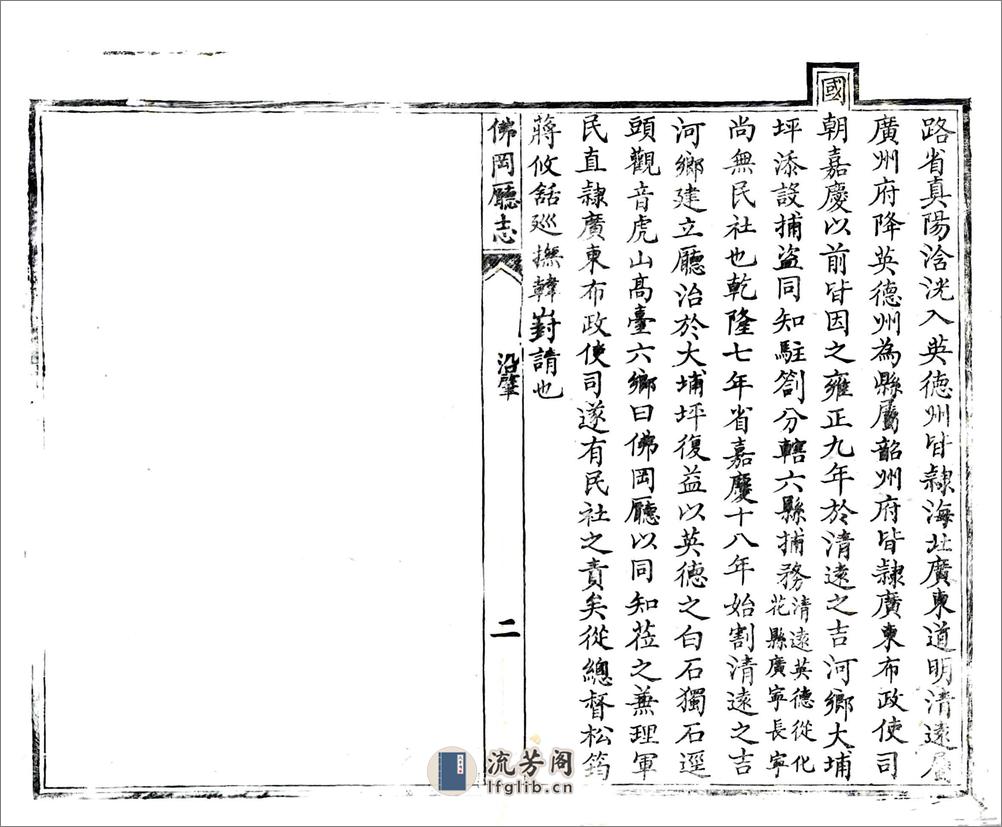 路省真陽浛洸入英德州皆隷海北廣東道明清遠屬
廣州府降英德州為縣屬韶州府皆隷廣東布政使司
國
朝嘉慶以前皆因之雍正九年於清遠之吉河鄉大埔
坪添設捕盜同知駐劄分轄六縣捕務清遠英德從化
花縣廣寧長寧
尚無民社也乾隆七年省嘉慶十八年始割清遠之吉
河鄉建立廳治於大埔坪復益以英德之白石獨石逕
頭觀音虎山高臺六鄉曰佛岡廳以同知蒞之兼理軍
民直隷廣東布政使司遂有民社之責矣從總督松筠
蔣攸銛廵撫韓崶請也
佛岡廳志
沿肇
二
流芳阁
lfglib.cn